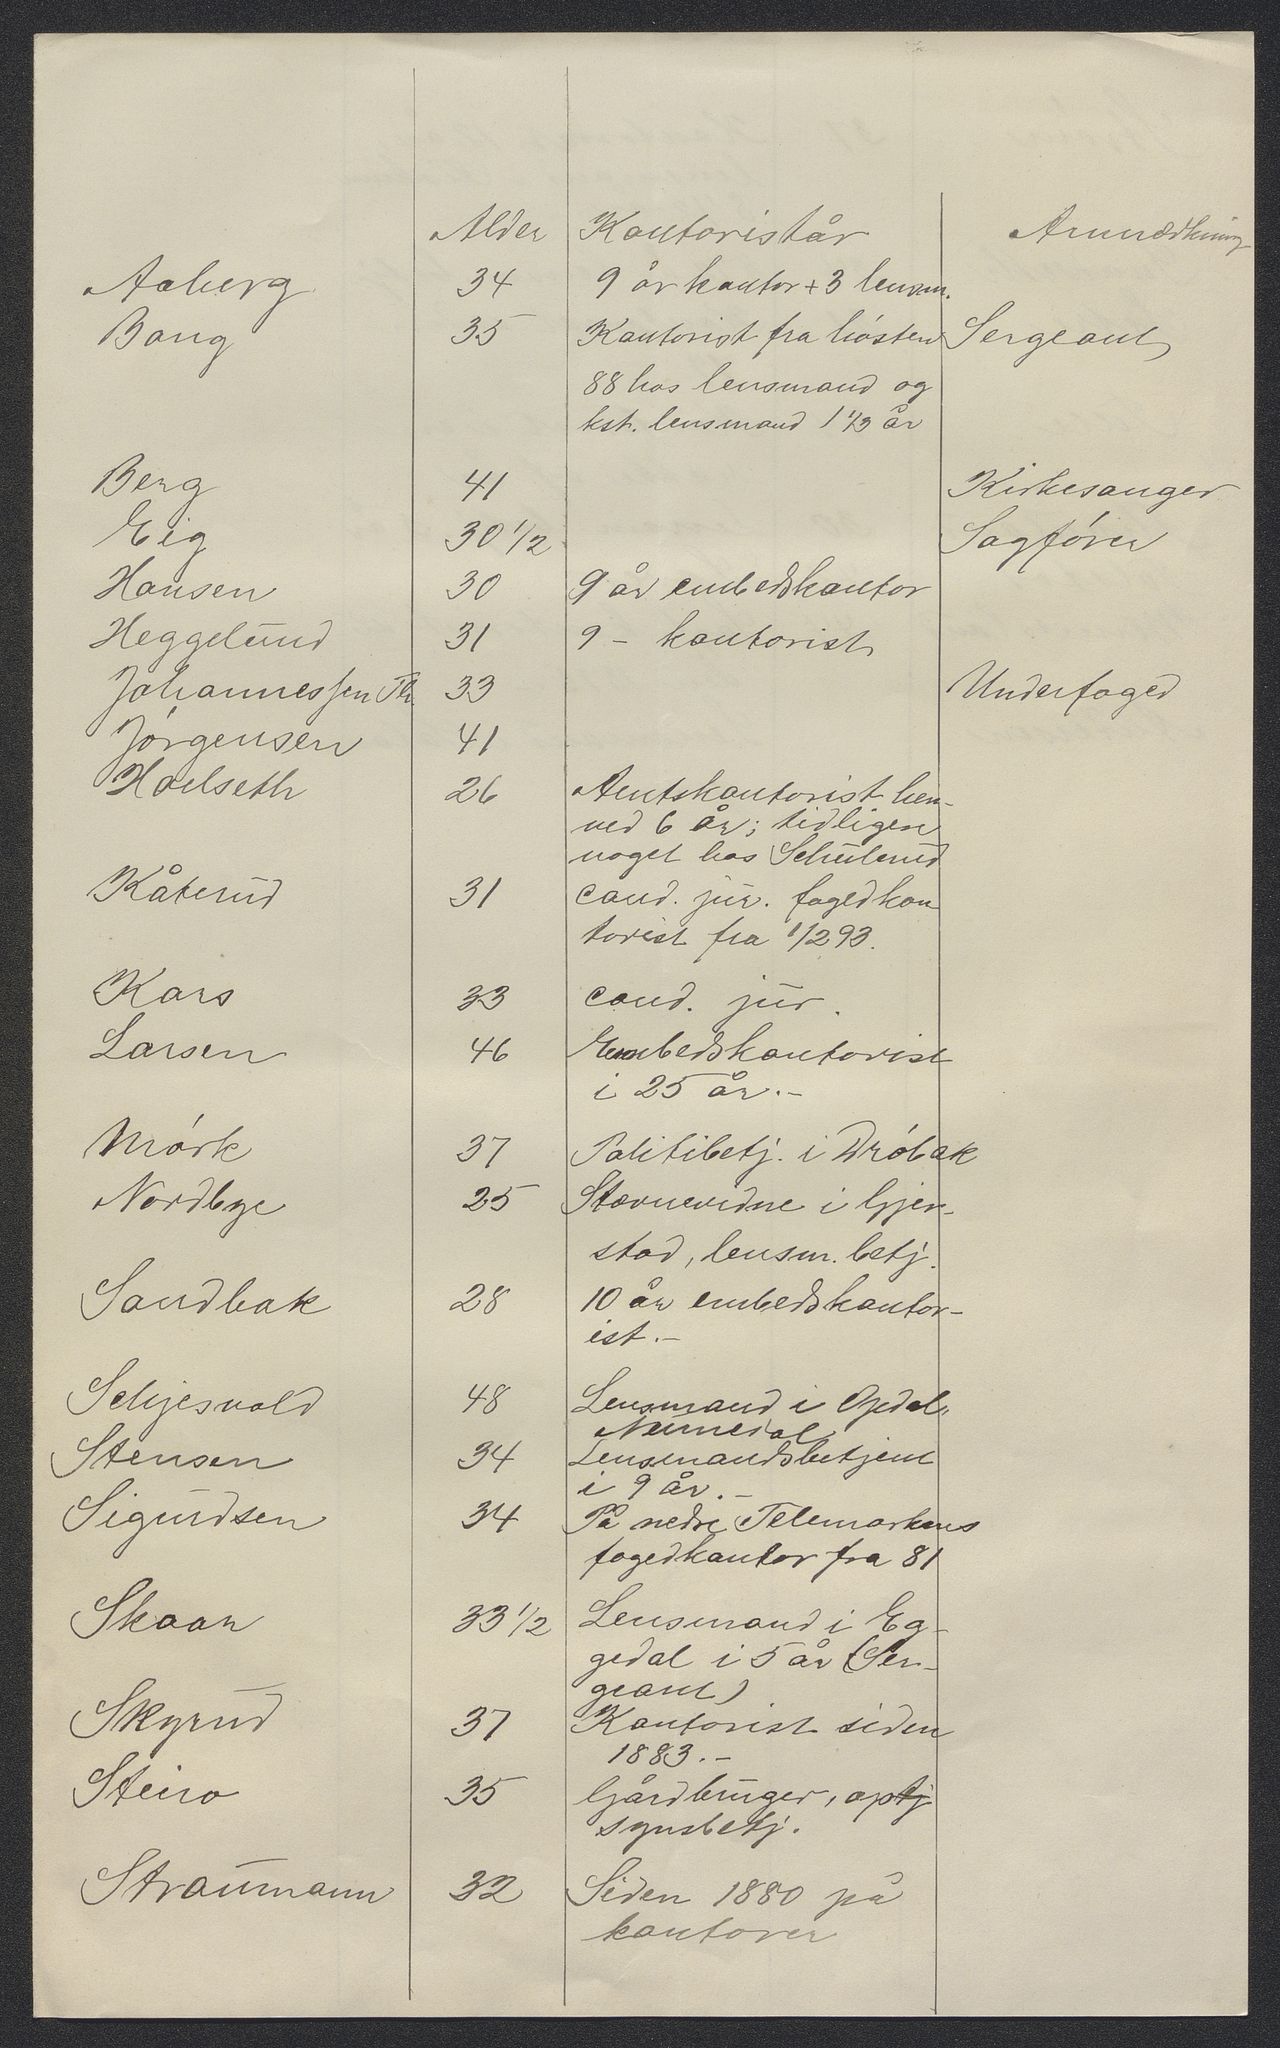 Alder Kontoristår Anmærkning
Aaberg 34 9 år kontor + 3 lensm.
Bang 35 Kontorist fra hösten Sergeant
88 hos lensmand og
kst. lensmand 1 1/3 år
Berg 41 Kirkesanger
Eig 30 1/2 Sagfører
Hansen 30 9 år embedskontor
Heggelund 31 9 - kontorist
Johannessen Th. 33 Underfoged
Jørgensen 41
Hoelseth 26 Amtskontorist hen-
ved 6 år; tidligere
noget hos Schulerud
Kåterud 31 cand. jur. fogedkon
torist fra 1/2 93.
Kars 33 cand. jur.
Larsen 46 Embedskontorist
i 25 år.-
Mörk 37 Politibetj. i Dröbak
Nordbye 25 Stævnevidne i Gjer-
stad, lensm. betj.
Sandbak 28 10 år embedskontor-
ist.-
Schjesvold 48 Lensmand i Opdal,
Numedal
Stensen 34 Lensmandsbetjent
i 9 år.-
Sigurdsen 34 På nedre Telemarkens
fogedkontor fra 81
Skaar 33 1/2 Lensmand i Eg-
gedal i 5 år (Ser-
geant)
Skyrud 37 Kontorist siden
1883.-
Steiro 35 Gårdbruger, optj
synsbetj.
Straumann 32 Siden 1880 på
kontorer